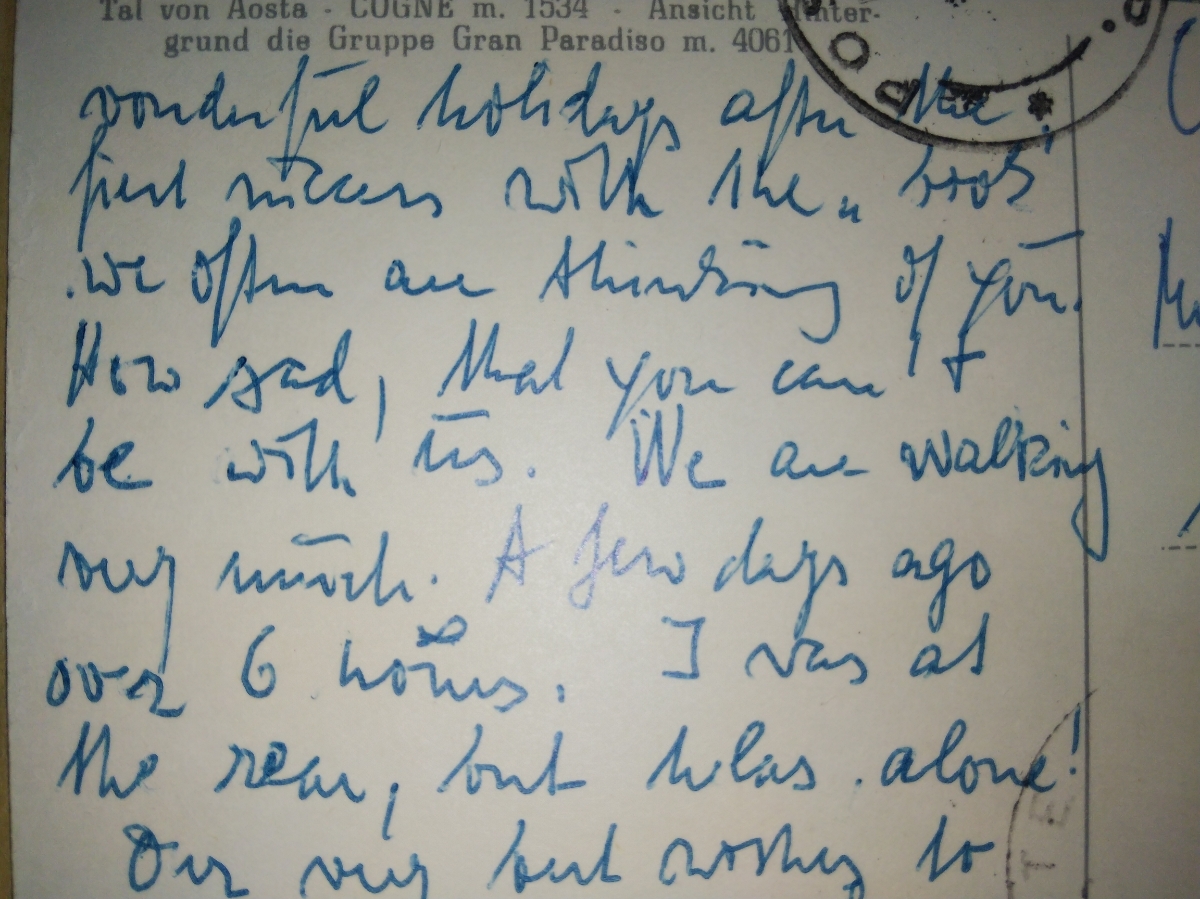 Tal von Aosta - COGNE m. 1534 - Ansicht Hinter-
grund die Gruppe Gran Paradiso m. 4061
wonderful holidays after the
with the
we often are thinking of you.
How sad, that you can't
be with us. We are walking
very much. A few days ago
over 6 hours. I was at
the rear, but helas alone!
Our very best wishes to